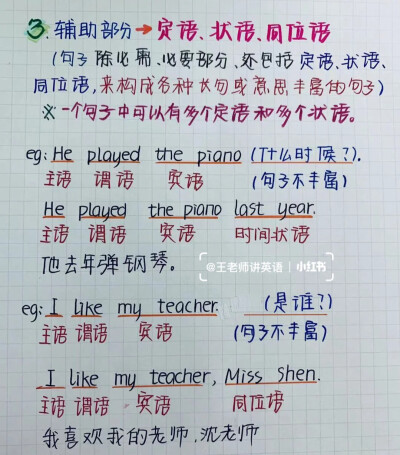 3. 辅助部分→定语、状语、同位语
(句子除必需、必要部分、还包括定语、状语、
同位语,来构成各种长句或意思丰富的句子)
※一个句子中可以有多个定语和多个状语。
eg: He played the piano (什么时候?).
主语 谓语 宾语 (句子不丰富)
He played the piano last year.
主语 谓语 宾语 时间状语
@王老师讲英语 | 小红书
他去年弹钢琴。
eg: I like my teacher. (是谁?)
主语 谓语 宾语 (句子不丰富)
I like my teacher, Miss Shen.
主语 谓语 宾语 同位语
我喜欢我的老师,沈老师